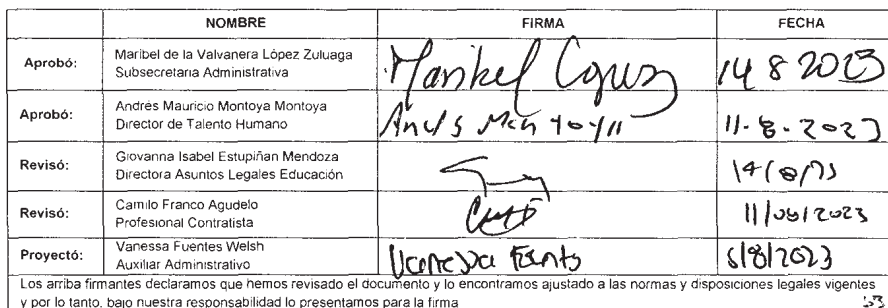 NOMBRE FIRMA FECHA
Aprobó: Maribel de la Valvanera López Zuluaga
Subsecretaria Administrativa
Maribel 14 8 2023
Aprobó: Andrés Mauricio Montoya Montoya
Director de Talento Humano
11-8-2023
Revisó: Giovanna Isabel Estupiñan Mendoza
Directora Asuntos Legales Educación
Revisó: Camilo Franco Agudelo
Profesional Contratista
11/08/2023
Proyectó: Vanessa Fuentes Welsh
Auxiliar Administrativo
Vanessa /8/2023
Los arriba firmantes declaramos que hemos revisado el documento y lo encontramos ajustado a las normas y disposiciones legales vigentes
y por lo tanto, bajo nuestra responsabilidad lo presentamos para la firma